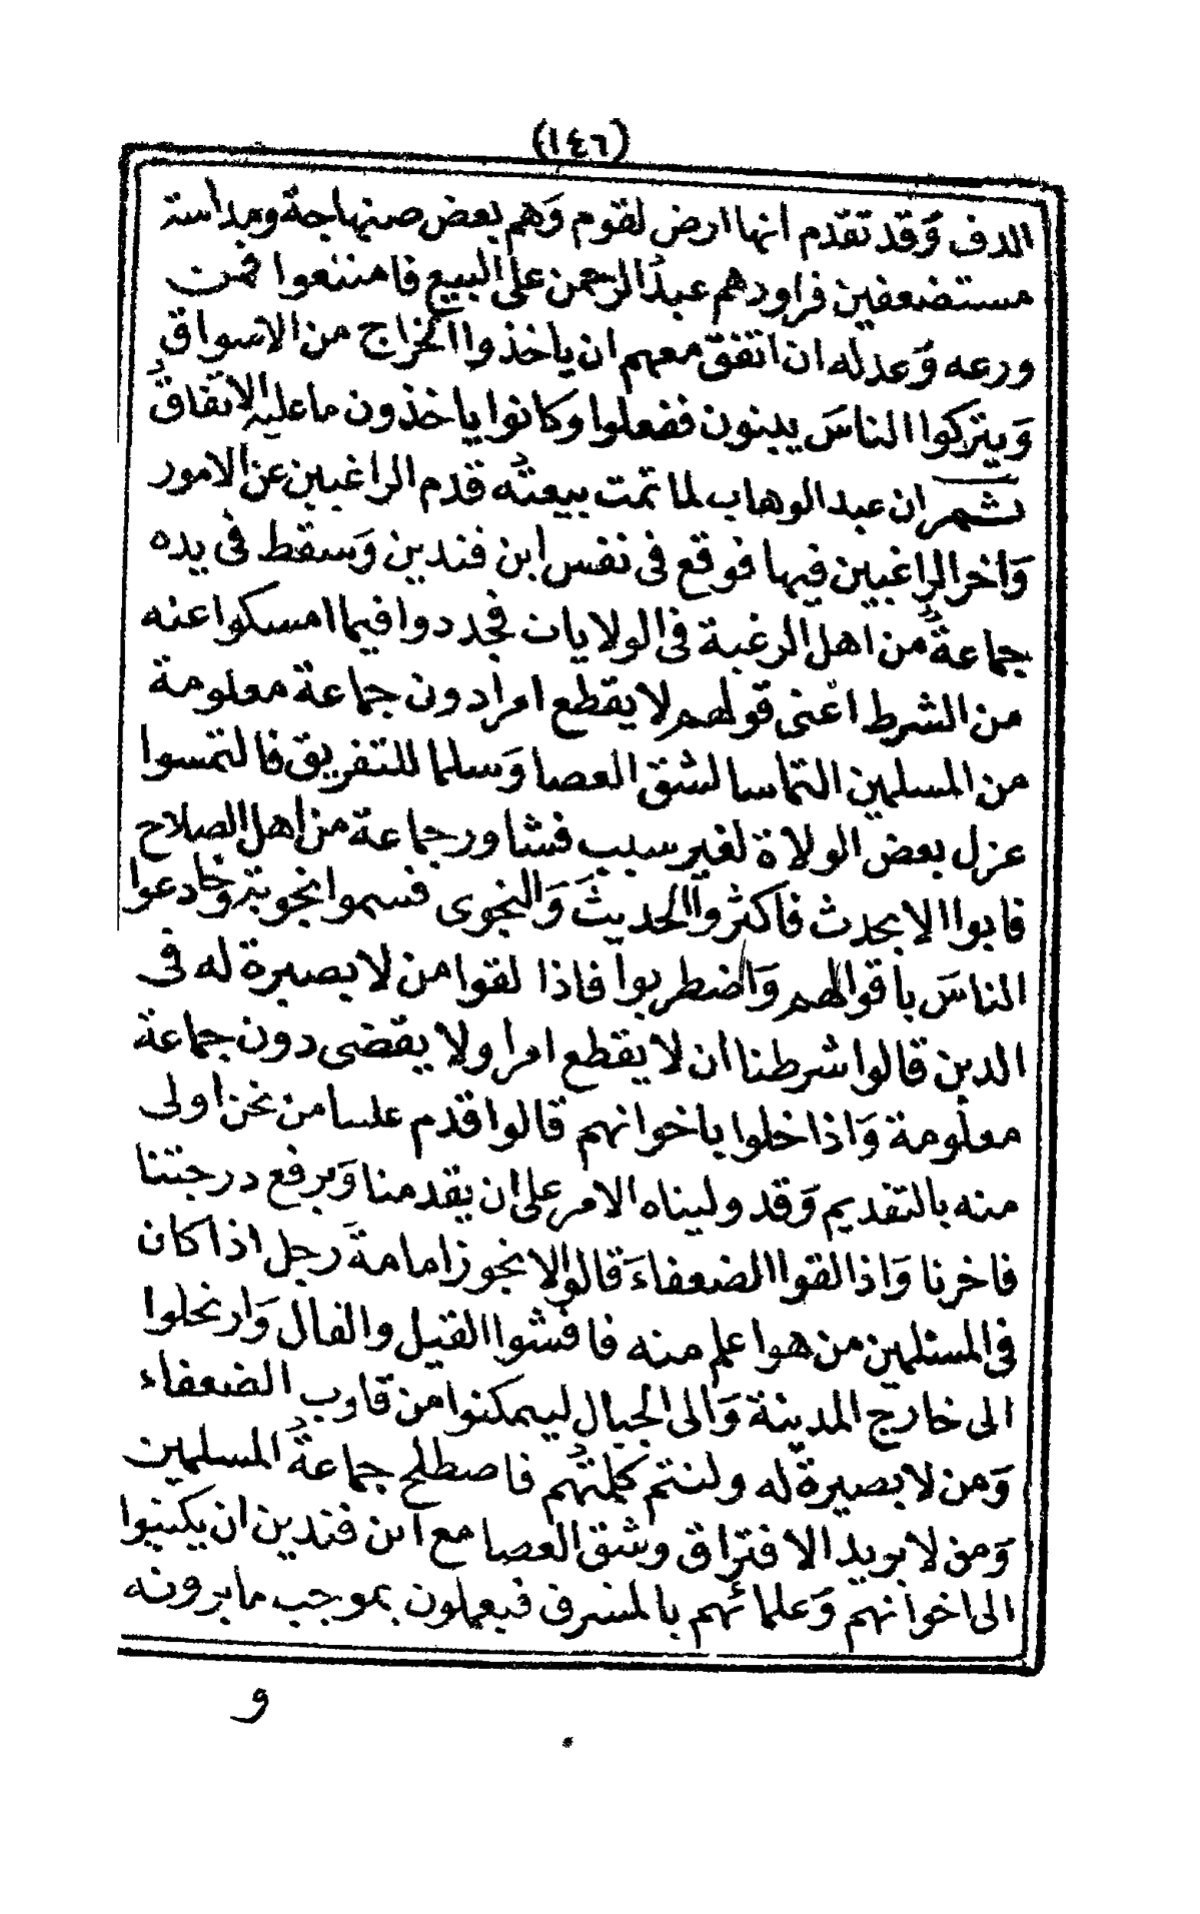 (١٤٦)
الدف وَقد تقدّم انها ارض لقوم وَهم بعض صنهاجة ومداسته
مستضعفين فراودهم عبدُ الرحمن على البيع فامتنعوا فمن
ورعه وَعدله ان اتفق معهم ان ياخذوا الخراج من الاسواق
وَيتركوا الناسَ يبنون ففعلوا وكانوا ياخذون ما عليه الاتفاقُ
ثم ان عبد الوهاب لما تمت بيعتُه قدم الراغبين عن الامور
وَاخر الراغبين فيها فوقع في نفس ابن فندين وَسقط في يده
جماعةٌ من اهل الرغبة في الولايات فجددوا فيما امسكوا عنه
من الشرط اعني قولهم لا يقطع امرا دون جماعة معلومة
من المسلمين التماسا لشق العصا وَسلما للتفريق فالتمسوا
عزل بعض الولاة لغير سبب فشاور جماعة من اهل الصلاح
فابوا الا بحدث فاكثروا الحديثَ وَالنجوى فسموا نجوية وخادعوا
الناسَ باقوالهم وَاضطربوا فاذا لقوا من لا بصيرة له في
الدين قالوا شرطنا ان لا يقطع امرا ولا يقضى دون جماعة
معلومة وَاذا خلوا باخوانهم قالوا قدم علىنا من نحن اولى
منه بالتقديم وَقد وليناه الامر على ان يقدمنا وَيرفع درجتنا
فاخرنا وَاذا لقوا الضعفاءَ قالوا لا نجوز امامةَ رجل اذا كان
في المسلمين من هو اعلم منه فافشوا القيل والقال وَارتحلوا
الى خارج المدينة وَالى الجبال ليمكنوا من قلوب الضعفاء
وَمن لا بصيرة له ولتتم كلمتُهم فاصطلح جماعةُ المسلمين
وَمن لا يريد الافتراق وشق العصا مع ابن فندين ان يكتبوا
الى اخوانهم وَعلمائهم بالمشرق فيعملون بموجب ما يرونه
و